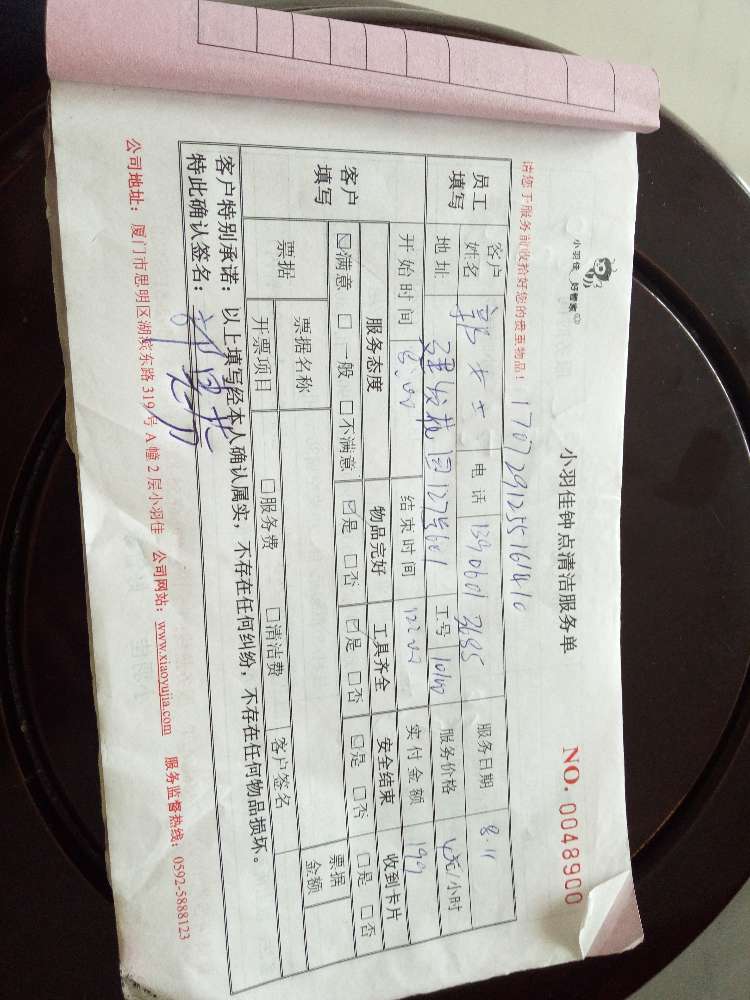 小羽佳 好管家
小羽佳钟点清洁服务单
NO. 0048900
请您于服务前收拾好您的贵重物品！
员工填写 客户姓名 郭女士 电话 服务日期 8.11
地址 建发花园 工号 服务价格 /小时
开始时间 8:00 结束时间 12:00 实付金额
客户填写 服务态度 物品完好 工具齐全 安全结束 收到卡片
☑满意 □一般 □不满意 ☑是 □否 ☑是 □否 ☑是 □否 □是 □否
票据 票据名称 客户签名 票据金额
开票项目 □服务费 □清洁费
客户特别承诺：以上填写经本人确认属实，不存在任何纠纷，不存在任何物品损坏。
特此确认签名：
公司地址：厦门市思明区湖滨东路 319 号 A 幢 2 层小羽佳 公司网站：www.xiaoyujia.com 服务监督热线：0592-5888123